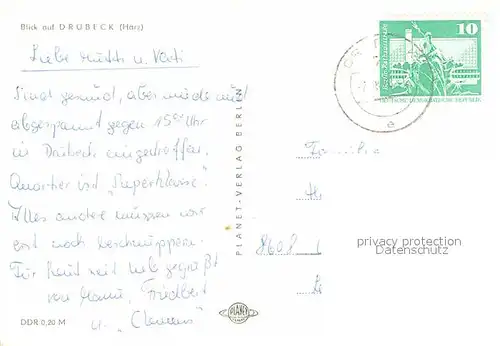 Blick auf DRÜBECK (Harz)
Liebe Mutti u. Vati
Sind gesund, aber müde und
abgespannt gegen 15°° Uhr
in Drübeck eingetroffen.
Quartier ist „Superklasse".
Alles andere müssen wir
erst noch beschnuppern.
Für heut seid lieb gegrüßt
von Manu, Friedbert
u. „Clemens"
DDR 0,20 M
PLANET-VERLAG BERLIN
PLANET
10
DEUTSCHE DEMOKRATISCHE REPUBLIK
e
Familie
8608
privacy protection
Datenschutz